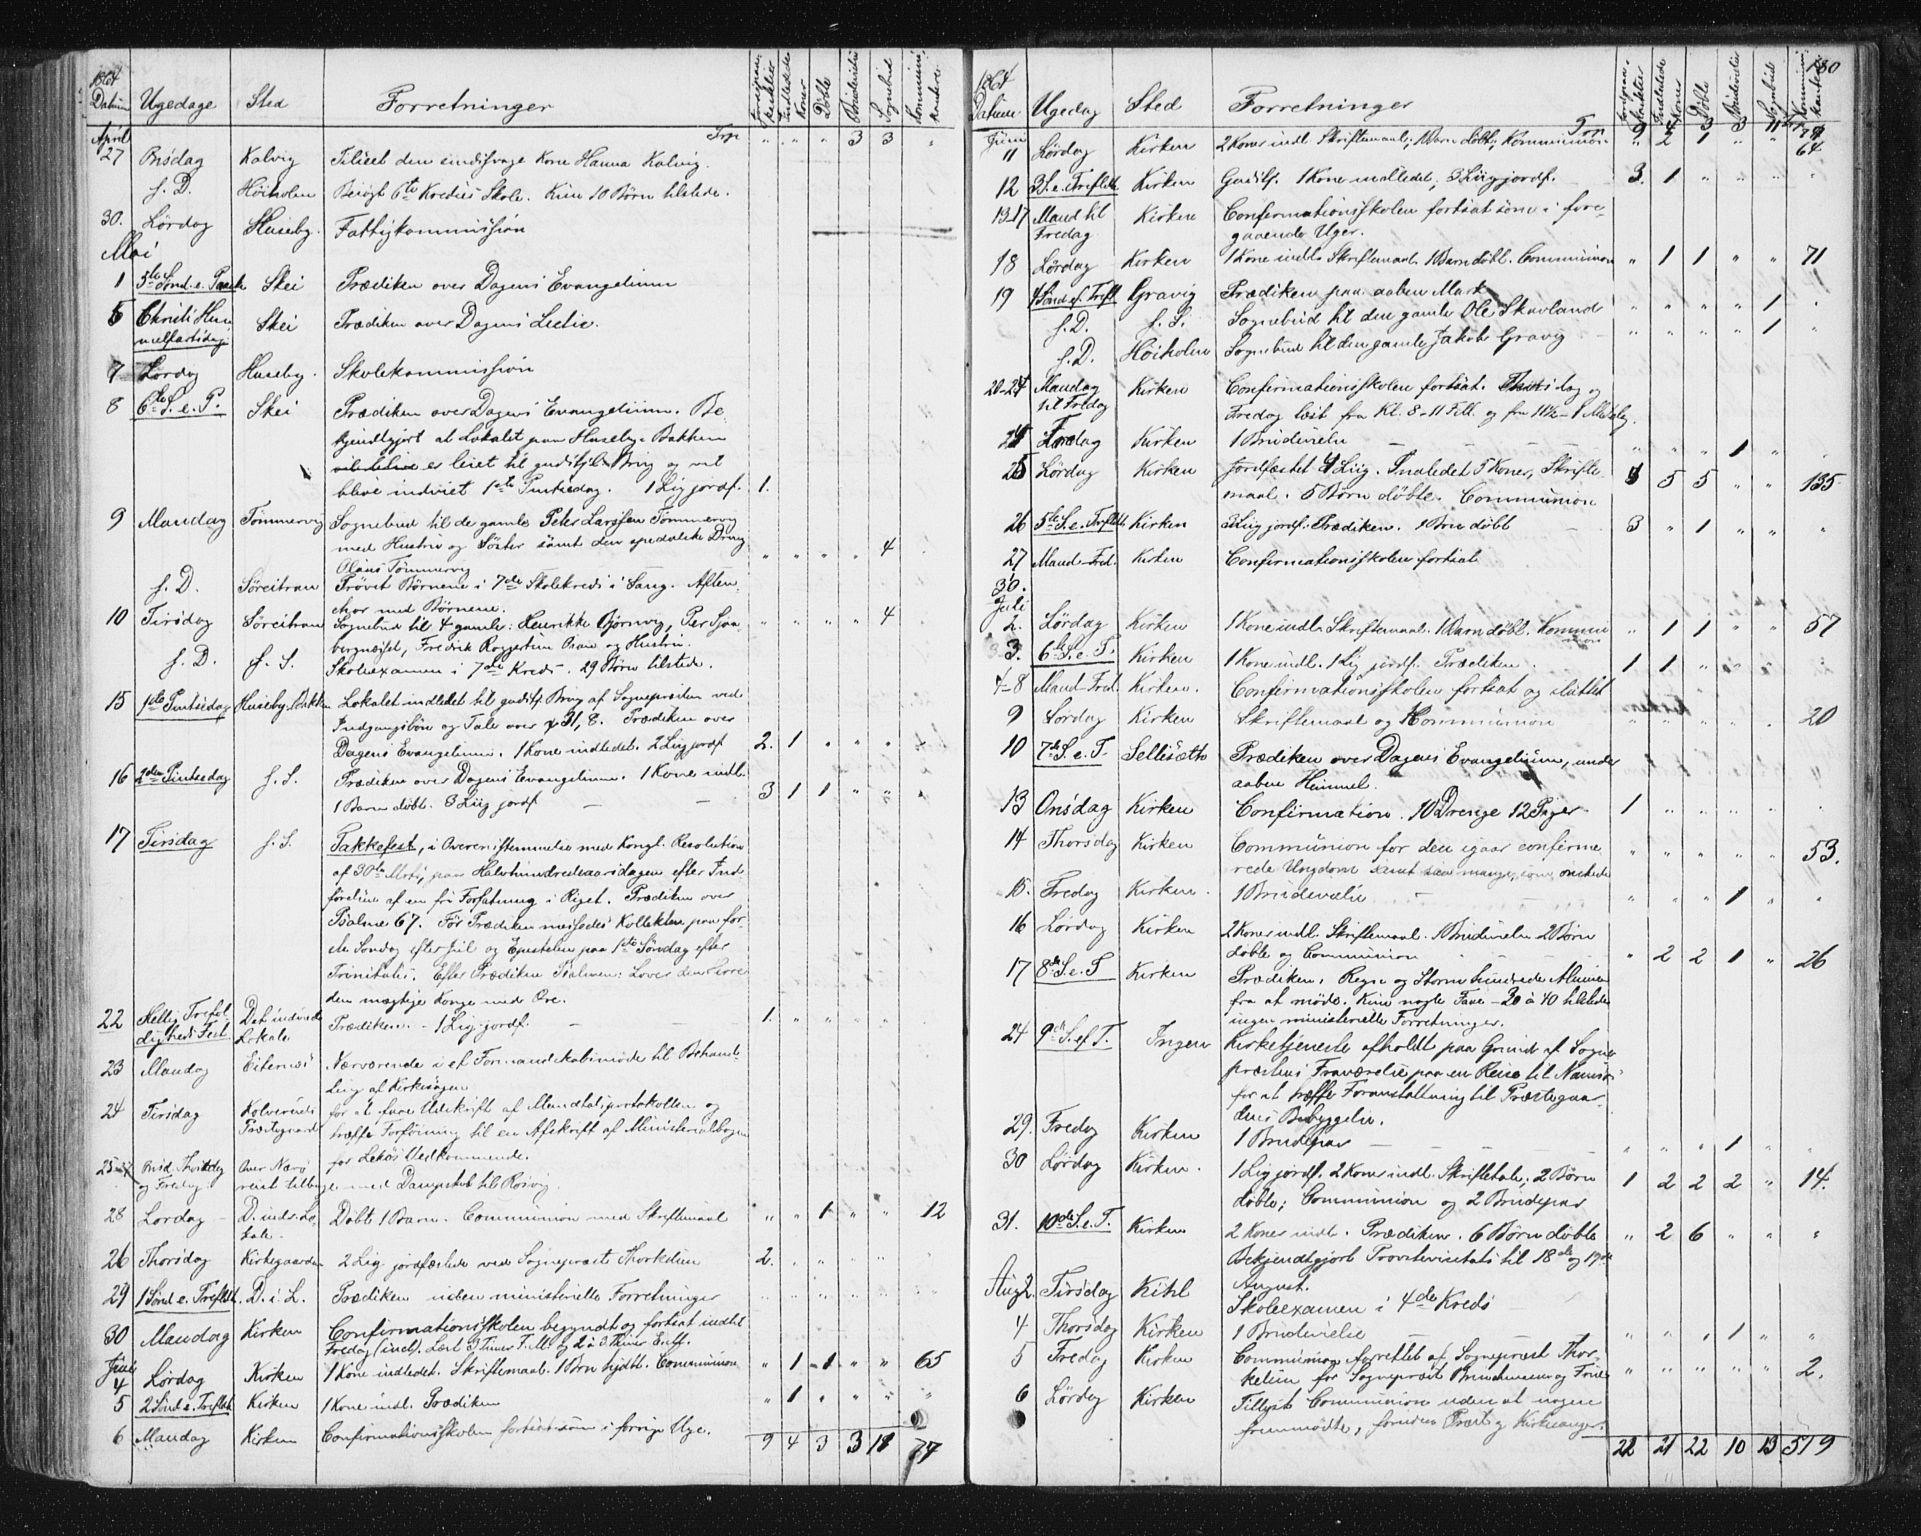 1864
Datum Ugedage Sted Forretninger Døbte Brudevielse Sognebud
April Trp " " " 3 3 "
27 Onsdag Kalvig Tilseet den sindssvage Kone Hanna Kalvig.
s. D. Høiholm Besøgt 6te Kredses Skole. Kun 10 Børn tilstede.
30. Lørdag Huseby. Fattigkommission
Mai
1 5te Sønd. e. Paaske Skei Prædiken over Dagens Evangelium
5 Christi Him- Skei Prædiken over Dagens Lectie.
melfartsdag
7 Lørdag Huseby. Skolekommission
8 6te S. e. P. Skei Prædiken over Dagens Evangelium. Be-
kjendtgjort at Lokalet paa Huseby-Bakken
er leiet til gudstjl. Brug og vil
blive indviet 1ste Pintsedag. 1 Lig jordf. 1.
9 Mandag Tømmervig Sognebud til de gamle Peter Larssen Tømmervig
med Hustru og Søster samt den spedalske Dreng
Olaus Tømmervig " " " " 4
s. D. Søreitran Prøvet Børnene i 7de Skolekreds i Sang. Aften-
chor med Børnene.
10 Tirsdag Søreitran Sognebud til 4 gamle: Henrikke Bjørnvig, Per Sjaa- " " " " 4
bergnæset, Fredrik Roggertun Bran og Hustru.
s. D. s. S. Skoleexamen i 7de Kreds - 29 Børn tilstede.
15 1ste Pintsedag Huseby-Bakken Lokalet indledet til gudstj. Brug af Sognepræsten ved
Indgangsbøn og Tale over 31, 8. Prædiken over
Dagens Evangelium. 1 Kone indledet. 2 Lig jordf. 2. 1 " " "
16 2den Pintsedag s. S. Prædiken over Dagens Evangelium. 1 Kone indl.
1 Barn døbt. 3 Lig jordf. 3 1 1 " "
17 Tirsdag s. S. Takkefest, i Overensstemmelse med Kongl. Resolution
af 30te Marts, paa Halvhundredeaarsdagen efter Ind-
førelsen af en fri Forfatning i Riget. Prædiken over
Psalme 67. Før Prædiken messedes Kollekten paa før-
ste Søndag efter Jul og Epistelen paa 1ste Søndag efter
Trinitatis. Efter Prædiken Psalmen: Lover den Herre
den mægtige Konge med Ære.
22 Hellig Trefol- Det indviede Prædiken. - 1 Lig jordf. 1.
digheds Fest. Lokale
23 Mandag Eiternæs Nærværende i et Formandskabsmøde til Behand-
ling af Kirkesagen
24 Tirsdag Kolvereids for at faae Udskrift af Mandtalsprotokollen og
Præstegaard træffe Forføining til en Afskrift af Ministerialbogen
for Lekøs Vedkommende.
25-27 Onsd. Thorsdag Over Nærø
og Fredag. reist tilbage med Dampskib til Rørvig.
28 Lørdag D. indv. Lo- Døbt 1 Barn. Communion med Skriftemaal " " 1 " " 12
kale.
26 Thorsdag Kirkegaarden 2 Lig jordfæstede ved Sognepræst Thorkelsen 2.
29 1 Sønd e. Trefltdh. D. i. L. Prædiken uden ministerielle Forretninger
30 Mandag Kirken Confirmationsskolen begyndt og fortsat indtil
Fredag (incl.) Læst 3 Timer F.M. og 2 a 3 Timer E.M.
Juni
4 Lørdag Kirken 1 Kone indledet. Skriftemaal. 1 Brn hjdbt. Communion " 1 1 " " 65
5 2 Sønd. e. Trefltdh Kirken 1 Kone indl. Prædiken " 1 " " " "
6 Mandag Kirken Confirmationsskolen fortsat som i forrige Uge.
9 4 3 3 11 77
180
1864
Datum Ugedag Sted Forretninger Døbte Brudevielse Sognebud
Juni Trp. 9 4 3 3 11 77
11 Lørdag Kirken 2 Koner indl. Skriftemaal; 1 Barn døbt; Kommunion " 2 1 " " 64
12 3 S. e. Trefltdh Kirken Gudstj. 1 Kone indledet; 3 Lig jordf. 3. 1 " " " "
13-17 Mand til Kirken Confirmationsskolen fortsat som i fore-
Fredag gaaende Uger.
18 Lørdag Kirken 1 Kone indl. Skriftemaal. 1 Barn døbt. Communion " 1 1 " " 71
19 4 Sønd. ef. Treflt. Gravig Prædiken paa aaben Mark
s. D. s. S. Sognebud til den gamle Ole Skavland " " " " 1 "
s. D. Høiholm Sognebud til den gamle Jakob Gravig " " " " 1 "
20-24 Mandag Kirken Confirmationsskolen fortsat. Thorsdag og
til Fredag Fredag læst fra Kl. 8-11 F.M. og fra 11½-1 Middag.
24 Fredag Kirken 1 Brudevielse " " " 1 " "
25 Lørdag Kirken Jordfæstet 4 Lig. Indledet 5 Koner, Skrifte- 4 5 5 " " 135
maal. 5 Børn døbte. Communion
26 5te S. e. Trefltdh. Kirken 3 Lig jordf. Prædiken. 1 Brn døbt 3 " 1 " " "
27 Mand-Fred. Kirken Confirmationsskolen fortsat
30.
Juli
2. Lørdag Kirken 1 Kone indl. Skriftemaal. 1 Barn døbt. Kommu- " 1 1 " " 57
nion
3. 6te S. e. T. Kirken 1 Kone indl. 1 Lig jordf. Prædiken. 1 1 " " " "
4-8 Mand-Fred. Kirken. Confirmationsskolen fortsat og sluttet
9 Lørdag Kirken Skriftemaal og Kommunion " " " " " 20
10 7de S. e. T. Sellisæth Prædiken over Dagens Evangelium, under
aaben Himmel.
13 Onsdag Kirken Confirmation. 10 Drenge 12 Piger 1 " " " " "
14 Thorsdag Kirken Communion for den igaar confirme- " " " " " 53.
rede Ungdom samt saa mange, som ønskede
15. Fredag Kirken. 1 Brudevielse " " " 1 " "
16 Lørdag Kirken 2 Koner indl. Skriftemaal. 1 Brudevielse 2 Børn
døbte og Communion " 2 2 1 " 26
17 8de S. e. T Kirken Prædiken. Regn og Storm hindrede Almuen
fra at møde. Kun nogle Faae - 30 à 40 tilstede
ingen ministerielle Forretninger.
24 9de S. ef. T. Ingen Kirketjeneste afholdt paa Grund af Sogne-
præstens Fraværelse paa en Reise til Namsos
for at træffe Foranstaltning til Præstegaar-
dens Bebyggelse.
29. Fredag Kirken 1 Brudepar " " " 1 " "
30 Lørdag Kirken. 1 Lig jordf. 2 Koner indl. Skriftetale, 2 Børn 1 2 2 2 " 14.
døbte; Communion og 2 Brudepar
31. 10de S. e. T. Kirken 2 Koner indl. Prædiken. 6 Børn døbte " 2 6 " " "
Bekjendtgjort Provstevisitats til 18de og 19de
August.
Aug 2. Tirsdag Kihl Skoleexamen i 4de Kreds
4 Thorsdag Kirken 1 Brudevielse " " " 1 " "
5 Fredag Kirken Communion forrettet af Sognepræst Thor-
kelsen for Sognepræst Brinchmann og Frue " " " " " 2.
6 Lørdag Kirken Tillyst Communion uden at nogen
fremmødte, foruden Præst og Kirkesanger.
22 21 22 10 13 519